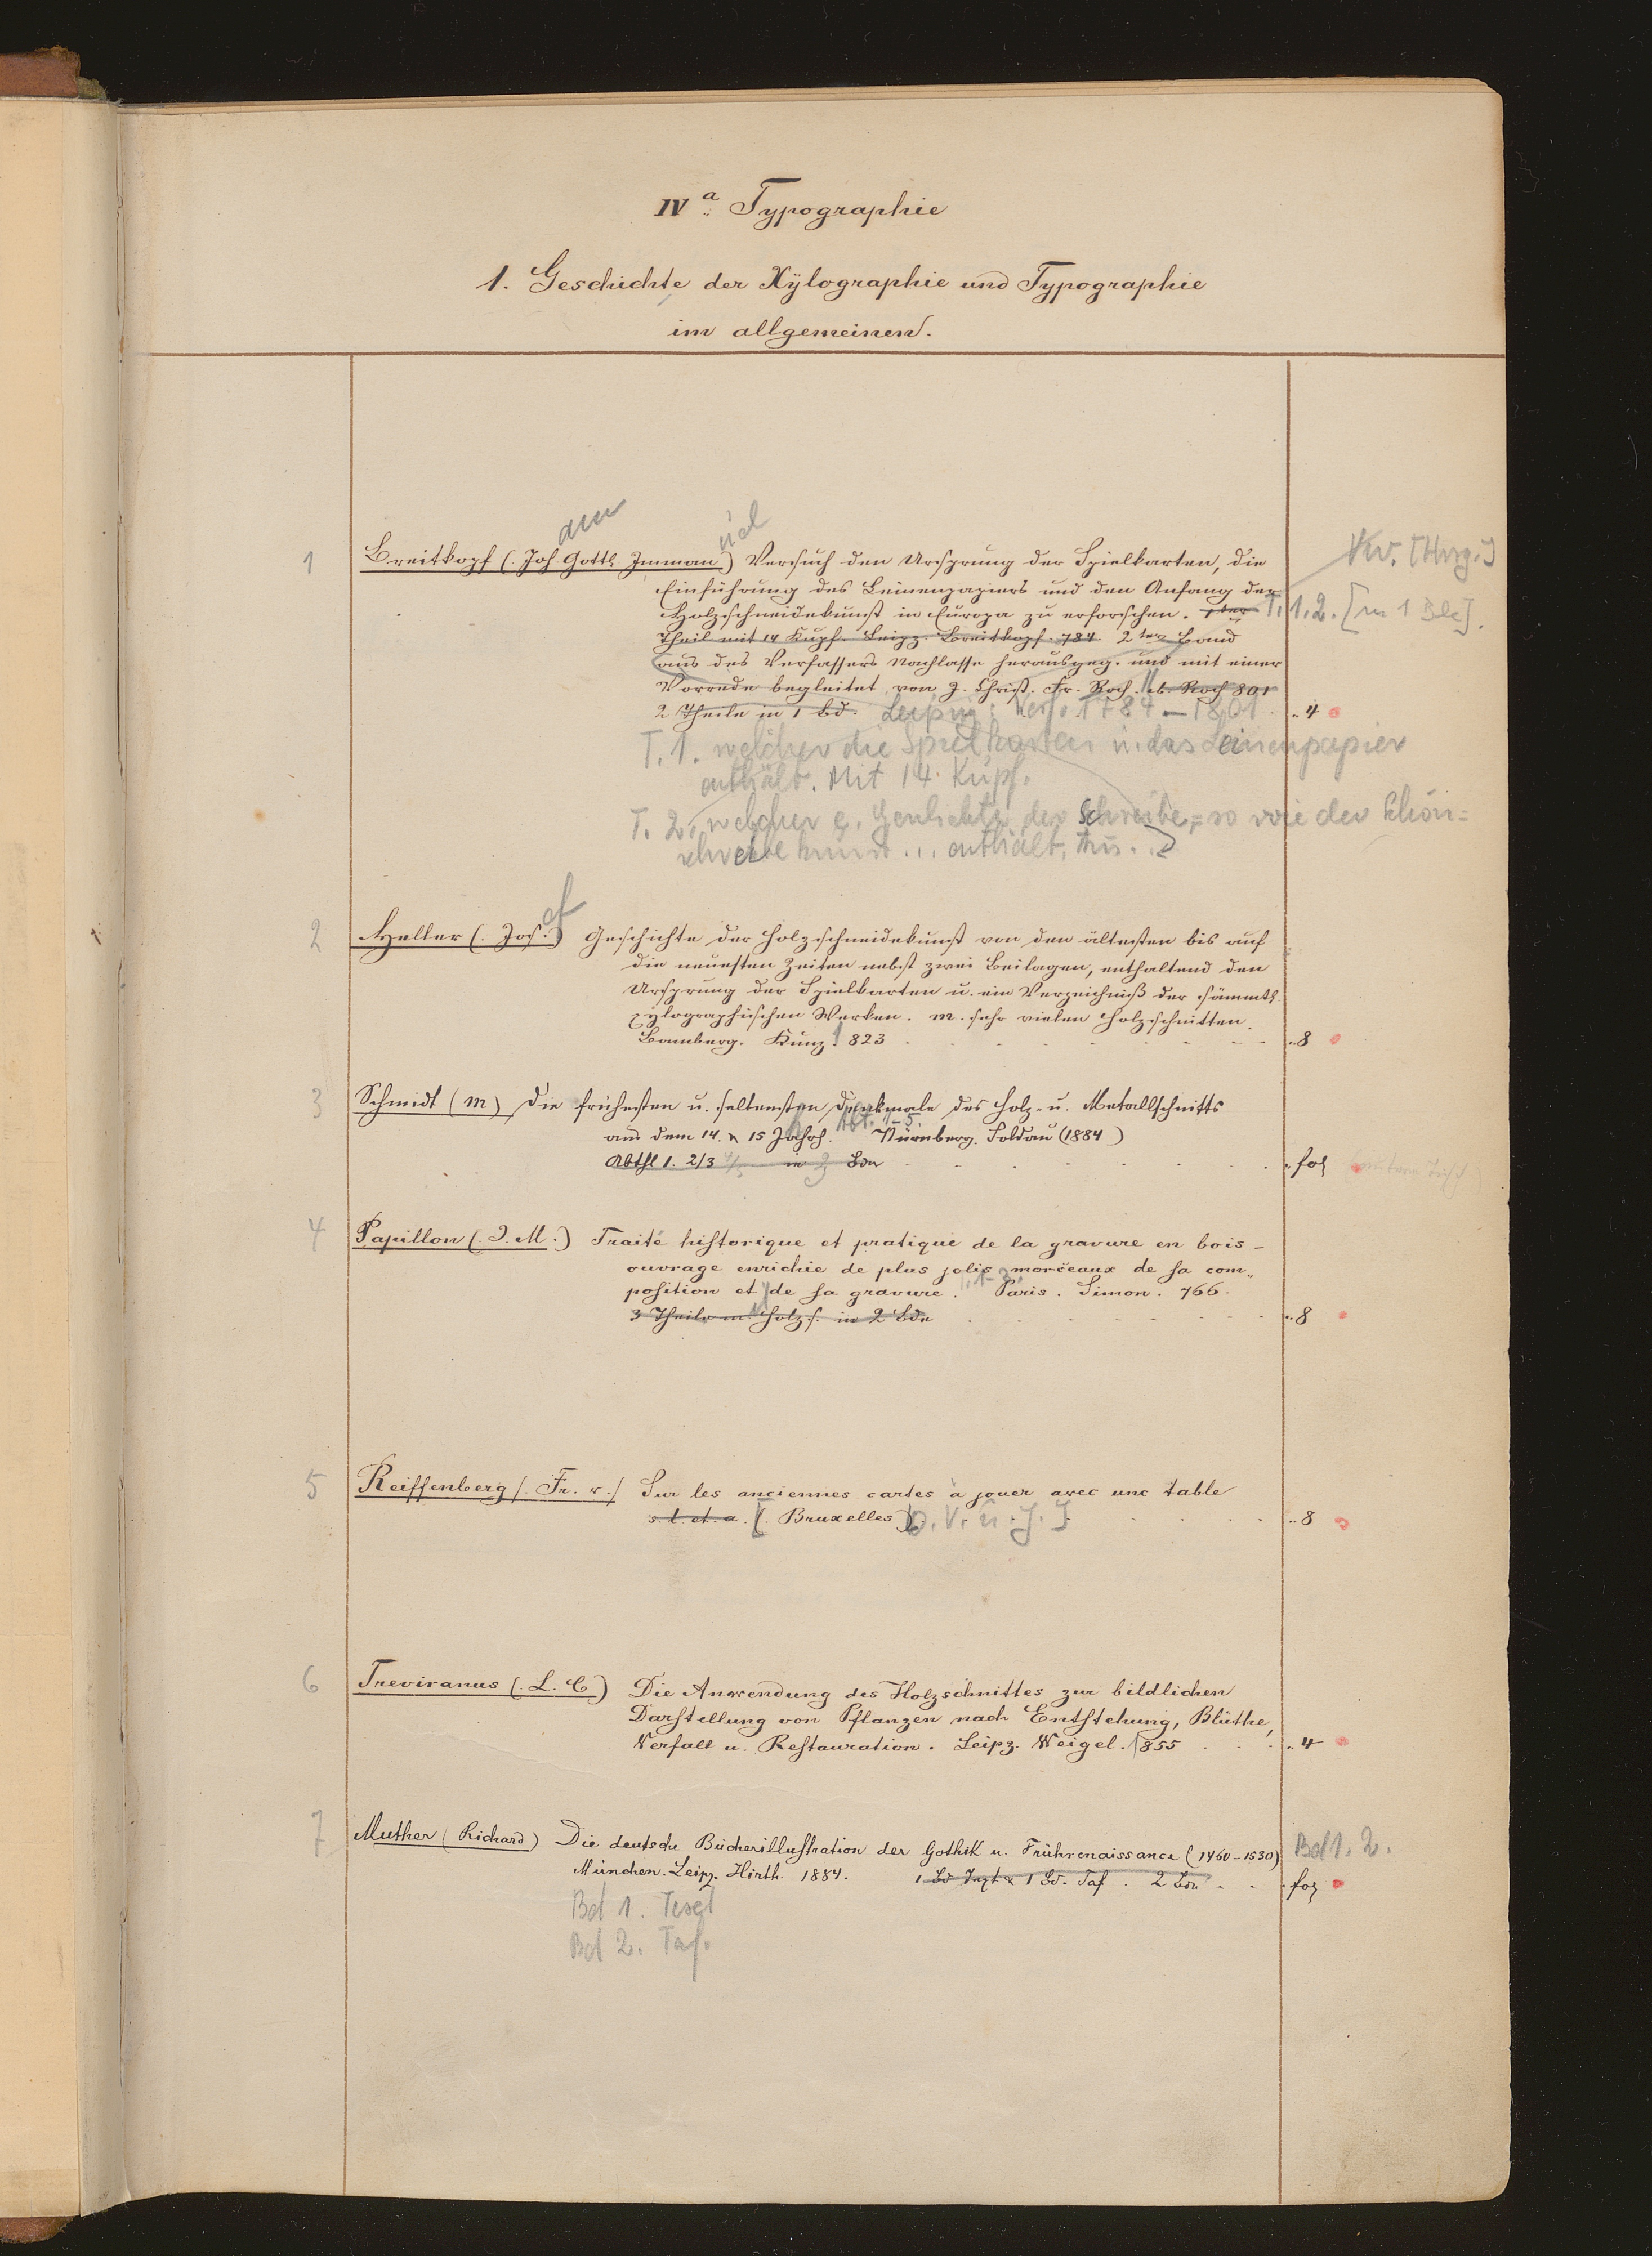 IV a Typographie
1. Geschichte der Xÿlographie und Typographie
im allgemeinen.
am
iel
1 Breitkopf (. Joh. Gottl. Imman.) Versuch den Ursprung der Spielkarten, die
Einführung des Leinenpapiers und den Anfang der
Holzschneidekunst in Europa zu erforschen. 1 ster T. 1. 2. [in 1 Bde].
Theil mit 14 Kupf. Leipz. Breitkopf. 784 2 ter Band
aus des Verfassers Nachlasse herausgeg. und mit einer
Vorrede begleitet von J. Christ. Fr. Roch. ib. Roch 801
2 Theile in 1 Bd. Leipzig: 1784 – 1801 .. 4
T. 1. welcher die Spielkarten u. das Leinenpapier
enthält. Mit 14. Kupf.
T. 2. welcher e. Geschichte der Schreibe, = so wie der Schön=
schreibekunst ... enthält,
ef
2 Heller (. Jos.) Geschichte der Holzschneidekunst von den ältesten bis auf
die neuesten Zeiten nebst zwei Beilagen, enthaltend den
Ursprung der Spielkarten u. ein Verzeichniß der sämmtl.
xylographischen Werken. m. sehr vielen Holzschnitten.
Bamberg. Kunz. 1823 .. 8
3 Schmidt (M) Die frühesten u. seltensten Denkmale des Holz- u. Metallschnitts
aus dem 14. & 15 Jahrh. Abt. 1-5. Nürnberg. Soldau (1884)
Abthl 1. 2/3 4/5 in 3 Bdn .. fol
4 Papillon (. J. M.) Traité historique et pratique de la gravure en bois –
ouvrage enrichie de plus jolis morceaux de sa com„
position et de sa gravure. 1-3. Paris. Simon. 766.
3 Theile m Holzs. in 2 Bdn .. 8
5 Reiffenberg /. Fr. v./ Sur les anciennes cartes à jouer avec une table
s. l. et. a. [. Bruxelles] o. V. u. J. ] .. 8
6 Treviranus (. L. C) Die Anwendung des Holzschnittes zur bildlichen
Darstellung von Pflanzen nach Entstehung, Blüthe,
Verfall u. Restauration. Leipz. Weigel. 1855 .. 4
7 Muther (Richard) Die deutsche Bücherillustration der Gothik u. Frührenaissance (1460–1530) Bd 1. 2.
München. Leipz. Hirth. 1884. 1 Bd Text & 1 Bd. Taf. 2 Bde .. fol
Bd 1. Text
Bd 2. Taf.